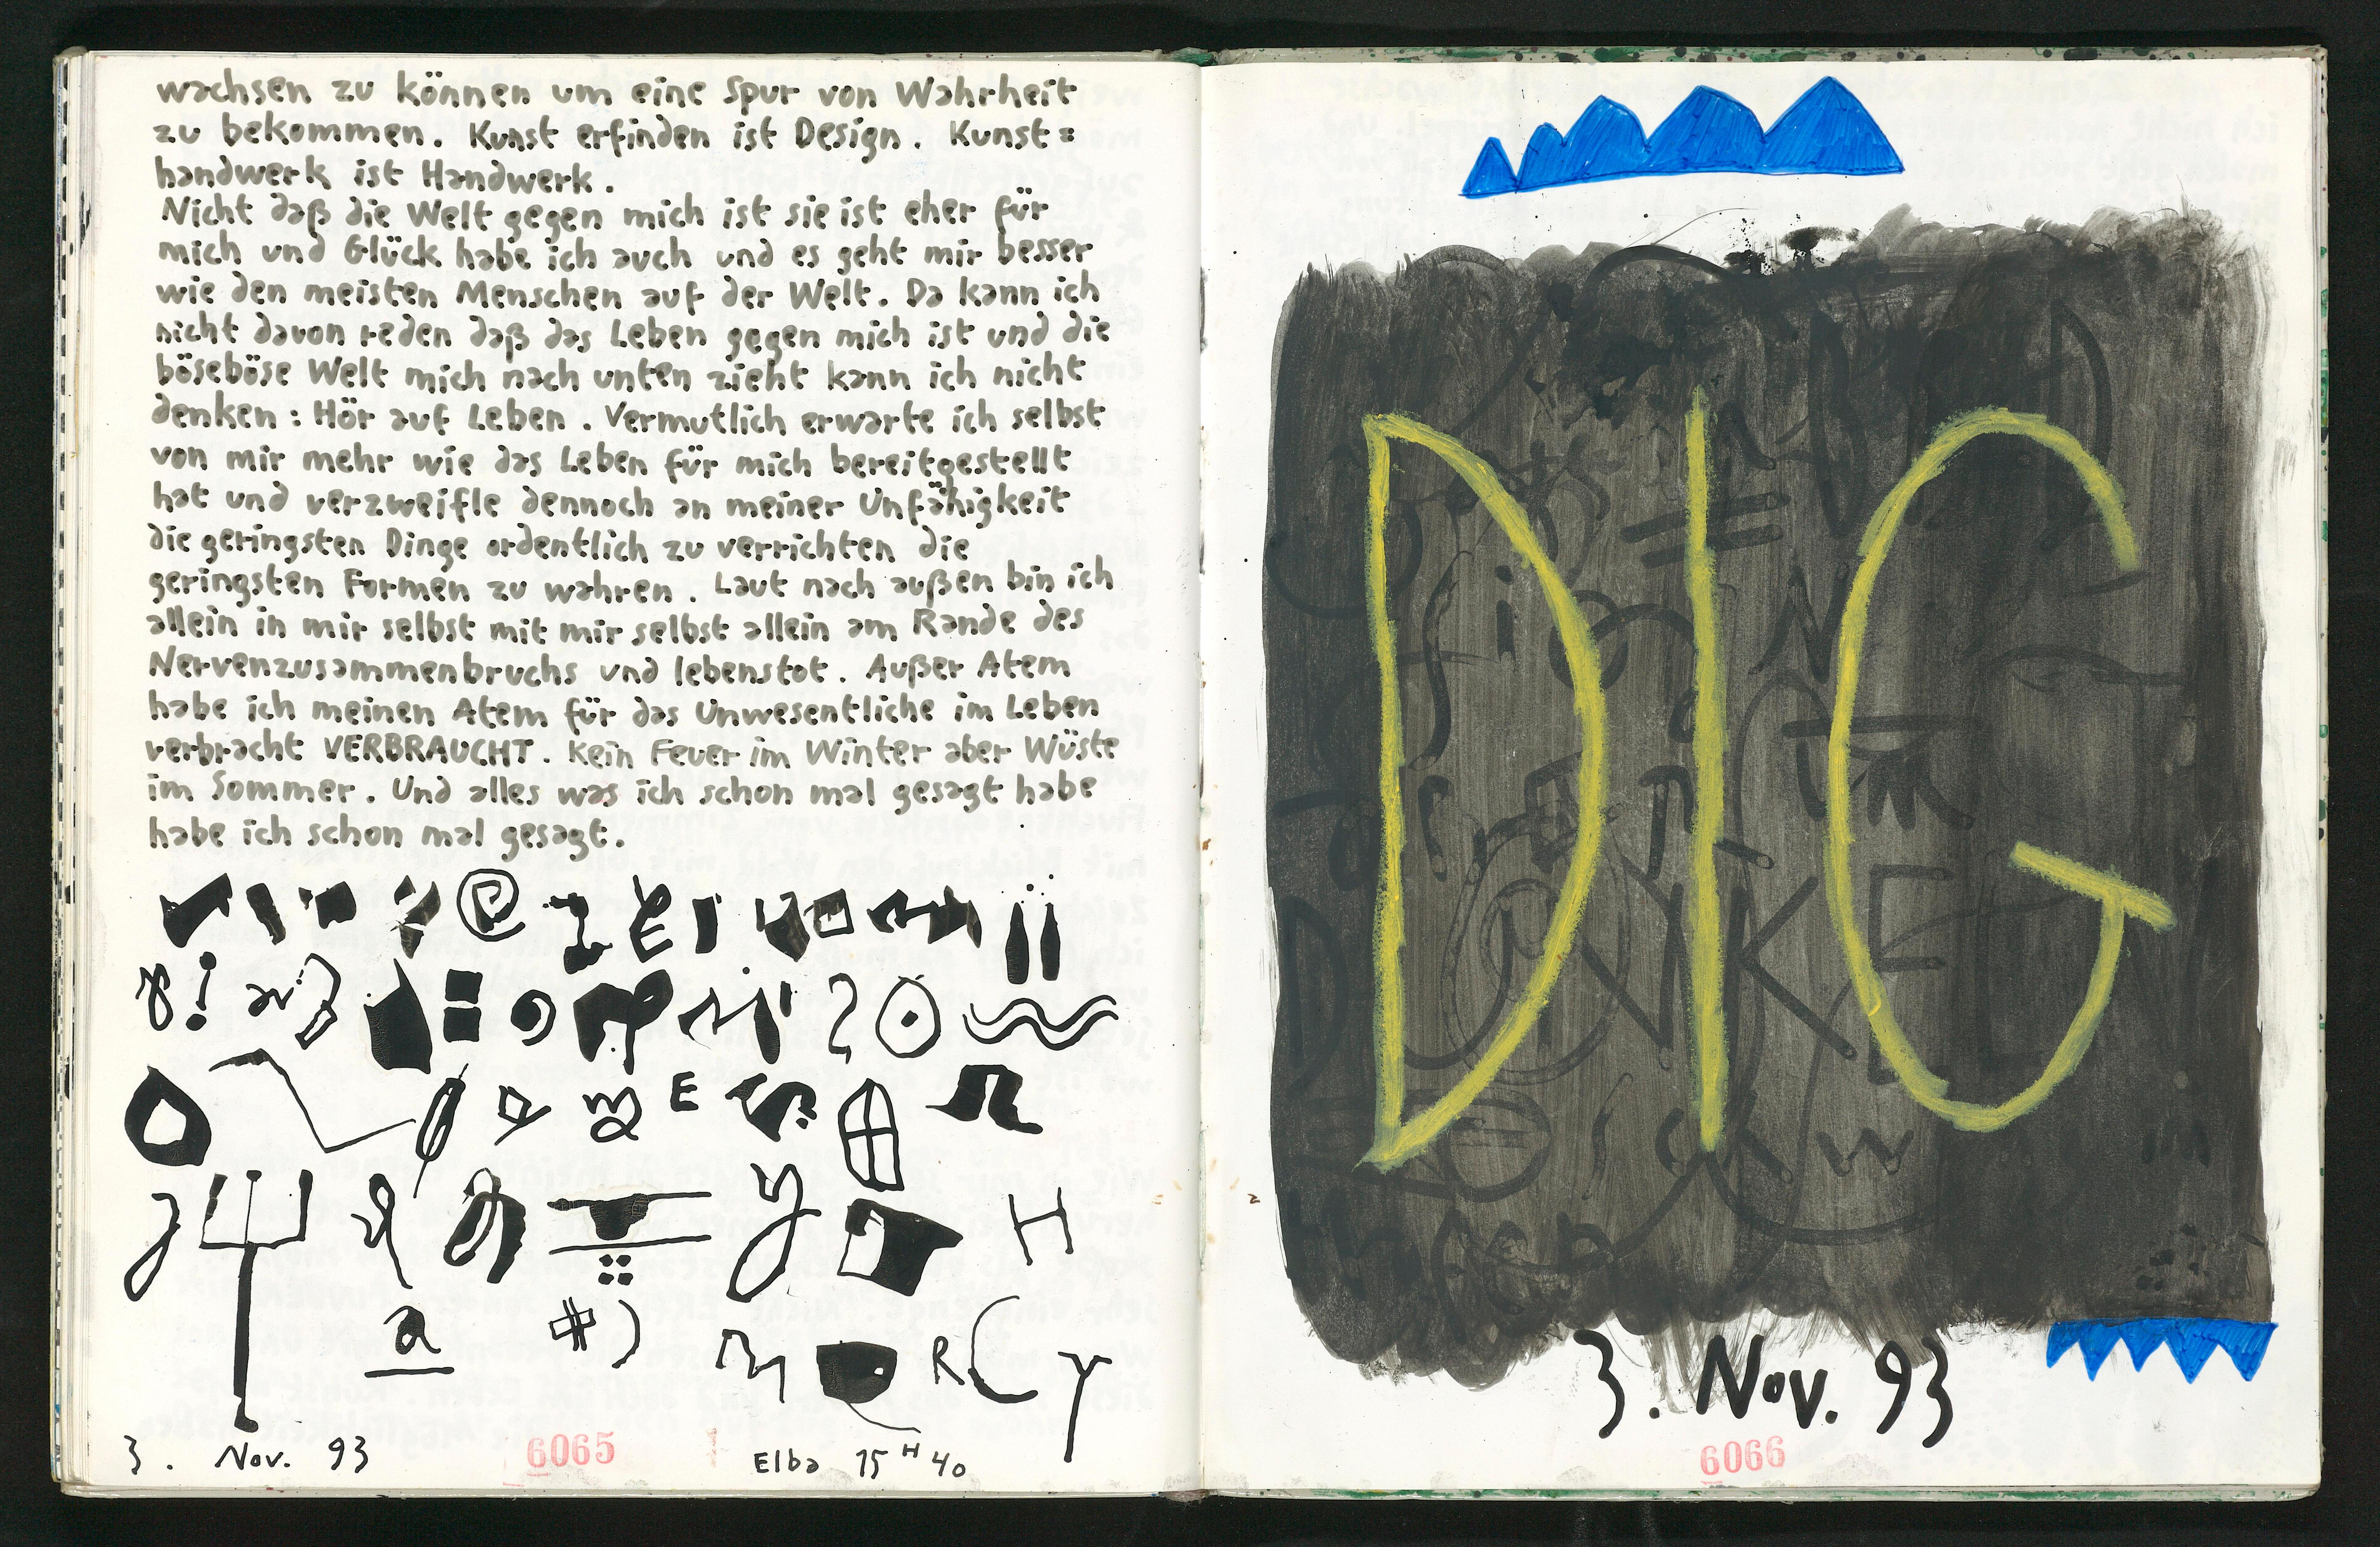 wachsen zu können um eine Spur von Wahrheit
zu bekommen. Kunst erfinden ist Design. Kunst=
handwerk ist Handwerk.
Nicht daß die Welt gegen mich ist sie ist eher für
mich und Glück habe ich auch und es geht mir besser
wie den meisten Menschen auf der Welt. Da kann ich
nicht davon reden daß das Leben gegen mich ist und die
böseböse Welt mich nach unten zieht kann ich nicht
denken: Hör auf Leben. Vermutlich erwarte ich selbst
von mir mehr wie das Leben für mich bereitgestellt
hat und verzweifle dennoch an meiner Unfähigkeit
die geringsten Dinge ordentlich zu verrichten die
geringsten Formen zu wahren. Laut nach außen bin ich
allein in mir selbst mit mir selbst allein am Rande des
Nervenzusammenbruchs und lebenstot. Außer Atem
habe ich meinen Atem für das Unwesentliche im Leben
verbracht VERBRAUCHT. Kein Feuer im Winter aber Wüste
im Sommer. Und alles was ich schon mal gesagt habe
habe ich schon mal gesagt.
E
H
a #)
R
3. Nov. 93 6065 Elba 15 H 40
DIG
3. Nov. 93
6066